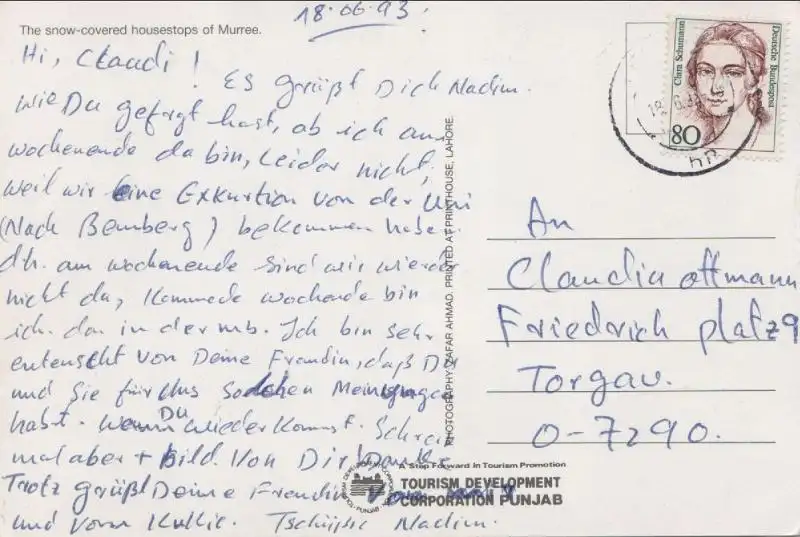 The snow-covered housestops of Murree.
18.06.93.
Hi, Claudi!
Es grüßt Dich Nadim.
wie Du gefargt hast, ob ich am
wochenende da bin, Leider nicht,
weil wir eine Exkurtion von der Uni
(Nach Bemberg) bekommen habe.
dh. am wochenende sind wir wieder
nicht da, kommede wochende bin
ich da in der mb. Ich bin sehr
entenscht von Deine Freudin, daß Du
und Sie für uns solchen Meinungen
habt. wenn Du wiederkommst. Schreib
mal aber + Bild. Von Dir Danke
Trotz grüßt Deine Freudin von mir
und vom Kullic. Tschüßc Nadim.
PHOTOGRAPHY ZAFAR AHMAD. PRINTED AT PRINTHOUSE, LAHORE.
Clara Schumann
Deutsche Bundespost
80
An
Claudia ottmann
Friedrich platz 9
Torgau.
O-7290.
A Step Forward in Tourism Promotion
TOURISM DEVELOPMENT
CORPORATION PUNJAB